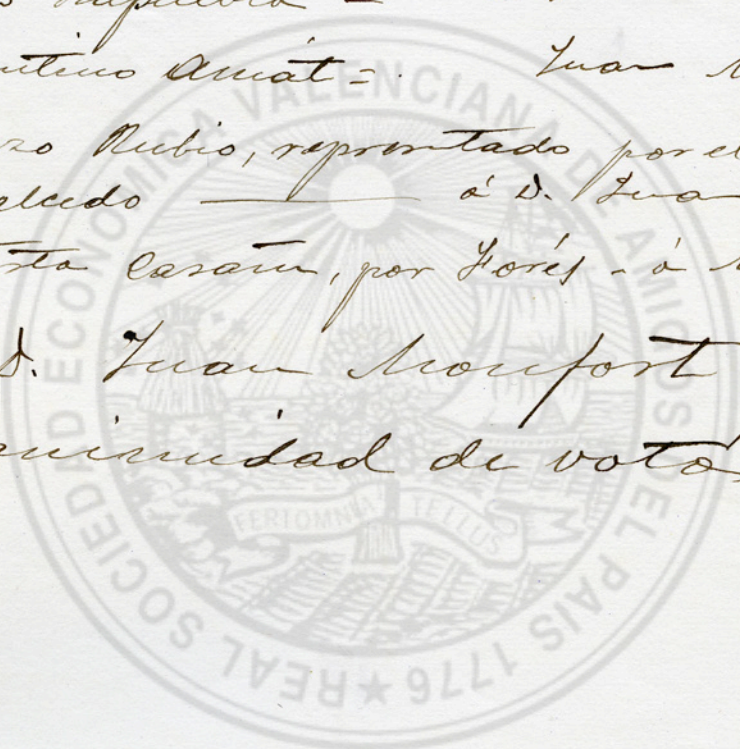 utino Amát =. Juan
zo Rubio, reprontado por el
alcedo ——— á D. Jua
rta Casañ, por Forés - á
D. Juan Monfort
animidad de votos
REAL SOCIEDAD ECONOMICA VALENCIANA DE AMIGOS DEL PAIS 1776
FERTOMNIA TELLUS